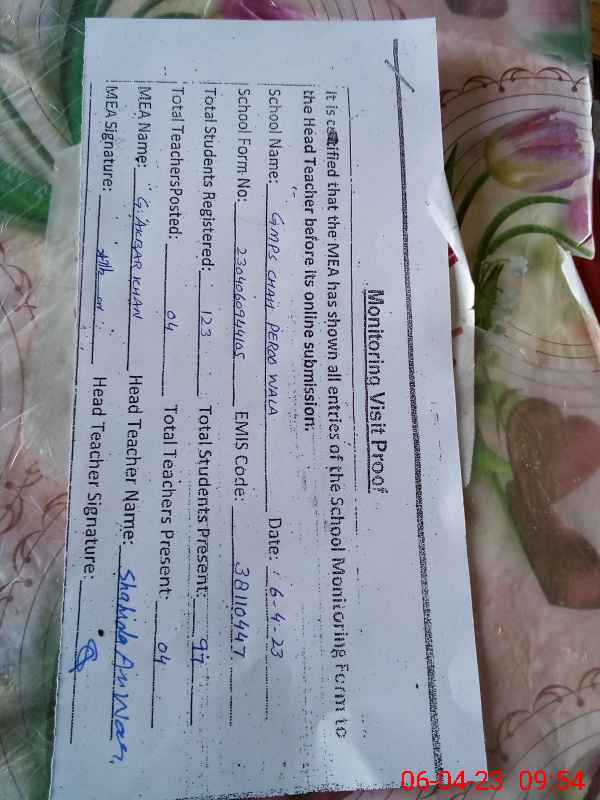 Monitoring Visit Proof
It is certified that the MEA has shown all entries of the School Monitoring Form to
the Head Teacher before its online submission.
School Name: GMPS CHAH PEROO WALA Date: 6-4-23
School Form No: 230406094405 EMIS Code: 38110447
Total Students Registered: 123 Total Students Present: 97
Total TeachersPosted: 04 Total Teachers Present: 04
MEA Name: G. ASGAR KHAN Head Teacher Name: Shahida Anwar,
MEA Signature: Head Teacher Signature:
06-04-23 09:54